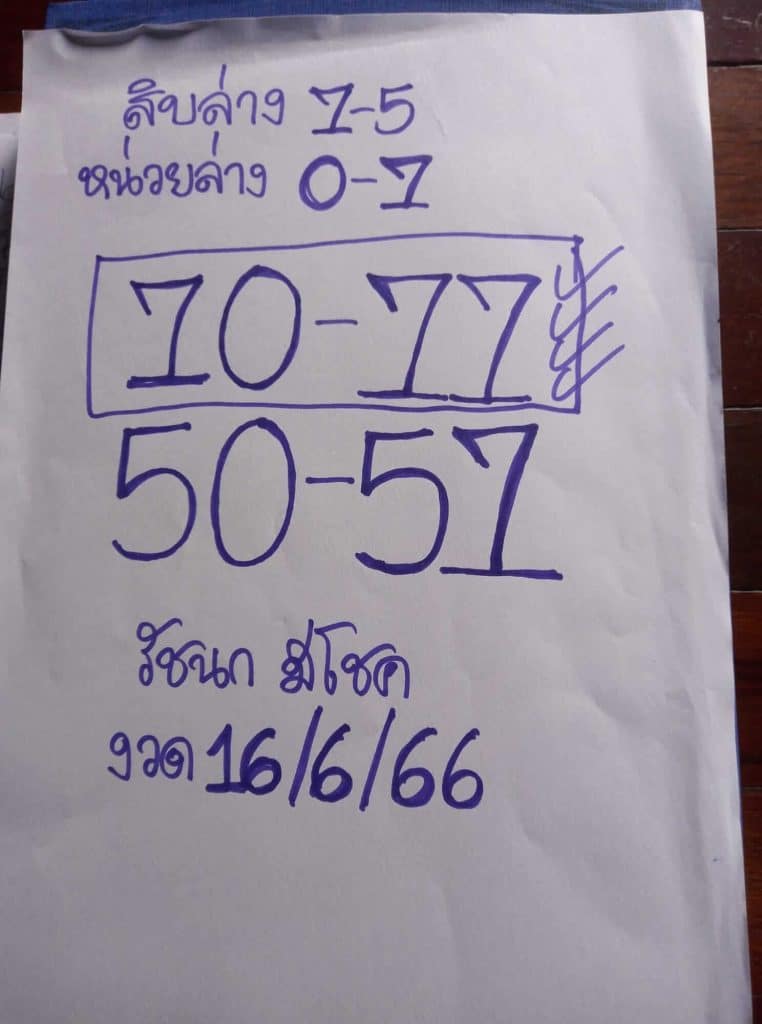 สิบล่าง 7-5
หน่วยล่าง 0-7
70-77
50-57
รัชนก มีโชค
งวด 16/6/66